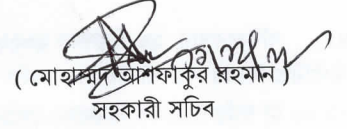 ( মোহাম্মদ আশফাকুর রহমান )
সহকারী সচিব